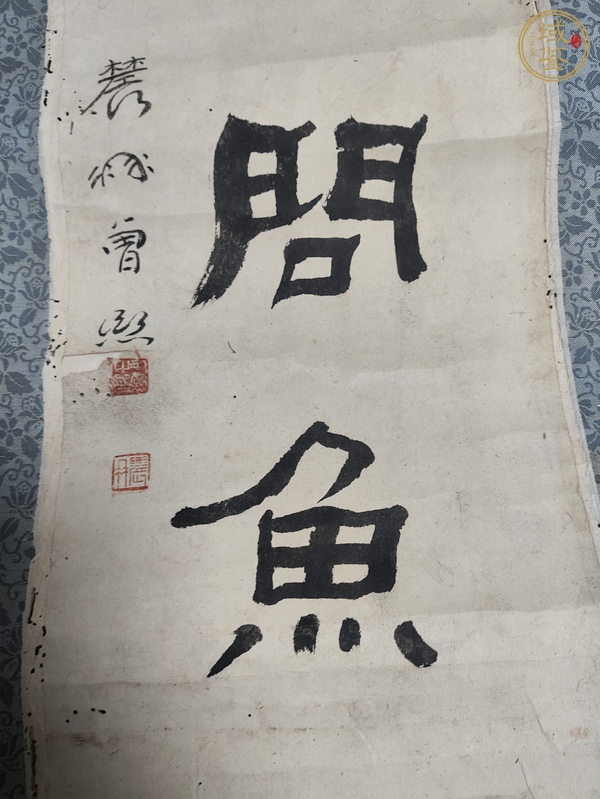 問魚
農髯曾熙